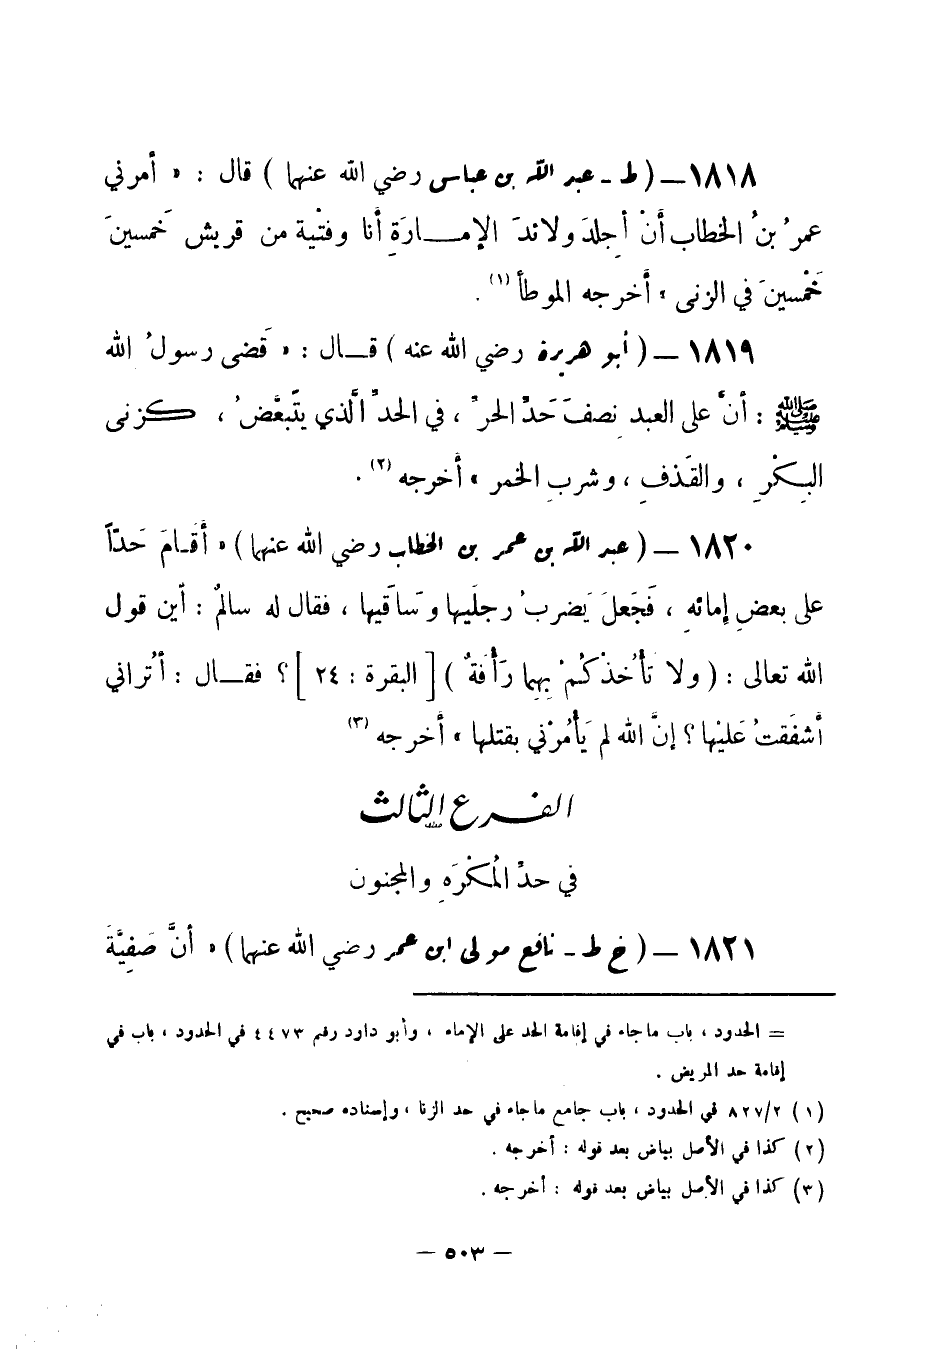 ١٨١٨ — ( ط - عبد الله بن عباس رضي الله عنهما ) قال : « أمرني
عمرُ بنُ الخطاب أنْ أجلِدَ ولائدَ الإمــارَةِ أنا وفتْية من قريش خَمسينَ
خَمْسينَ في الزنى » أخرجه الموطأ (١) .
١٨١٩ — ( أبو هريرة رضي الله عنه ) قــال : « قَضى رسولُ الله
ﷺ : أنَّ على العبدِ نصفَ حَدِّ الحرِّ ، في الحدِّ الَّذي يتَّبعَّضُ ، كزنى
البِكْرِ ، والقَذفِ ، وشربِ الخمر » أخرجه (٢) .
١٨٢٠ — ( عبد الله بن عمر بن الخطاب رضي الله عنهما ) « أقَـامَ حَدّاً
على بعضِ إمائهِ ، فَجَعلَ يَضربُ رجلَيها وسَاقَيها ، فقال له سالمٌ : أين قول
الله تعالى : ( ولا تأخذْكُمْ بِهِما رَأْفَةٌ ) [ البقرة : ٢٤ ] ؟ فقــال : أتُراني
أشفَقتُ عَلَيْها ؟ إنَّ الله لم يَأمُرْني بقتلها » أخرجه (٣)
الفــرع الثالث
في حدِّ المُكْرَهِ والمجنون
١٨٢١ — ( خ ط - نافع مولى ابن عمر رضي الله عنهما ) « أنَّ صَفِيَّةَ
= الحدود ، باب ما جاء في إقامة الحد على الإماء ، وأبو داود رقم ٤٤٧٣ في الحدود ، باب في
إقامة حد المريض .
(١) ٨٢٧/٢ في الحدود ، باب جامع ما جاء في حد الزنا ، وإسناده صحيح .
(٢) كذا في الأصل بياض بعد قوله : أخرجه .
(٣) كذا في الأصل بياض بعد قوله : أخرجه .
— ٥٠٣ —